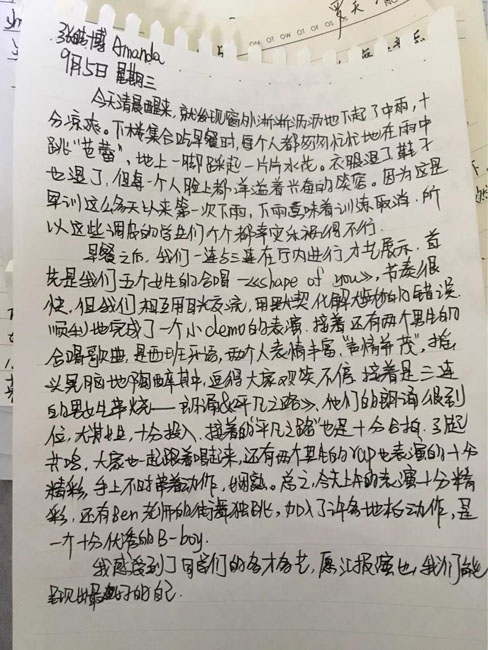 Amanda
9月5日 星期三
今天清晨醒来，就发现窗外淅淅沥沥地下起了中雨，十
分凉爽。下楼集合吃早餐时，每个人都匆匆忙忙地在雨中
跳“芭蕾”，地上一脚踩起一片片水花。衣服湿了鞋子
也湿了，但每一个人脸上都洋溢着兴奋的笑容。因为这是
军训这么多天以来第一次下雨，下雨意味着训练取消，所
以这些调皮的学生们个个都幸灾乐祸得不行。
早餐之后，我们一连与三连在厅内进行才艺展示。首
先是我们五个女生的合唱—《shape of you》，节奏很
快，但我们相互用眼光交流，用默契化解尴尬的错误
顺利地完成了一个小demo的表演，接着还有两个男生的
合唱歌曲，是西班牙语，两个人表情丰富，“声情并茂”，摇
头晃脑地陶醉其中，逗得大家欢笑不停 接着是三连
的男女生串烧——朗诵&《平凡之路》，他们的朗诵很到
位，十分投入，接着的“平凡之路”也是十分合拍，引起
共鸣，大家也一起跟着唱起来，还有两个男生的rap也表演的十分
精彩，手上不时带着动作，娴熟。总之，今天上午的表演十分精
彩，还有Ben老师的街舞独跳，加入了许多地板动作，是
一个十分优秀的B-boy.
我感受到了同学们的多才多艺，愿汇报演出，我们能
呈现出最好的自己.